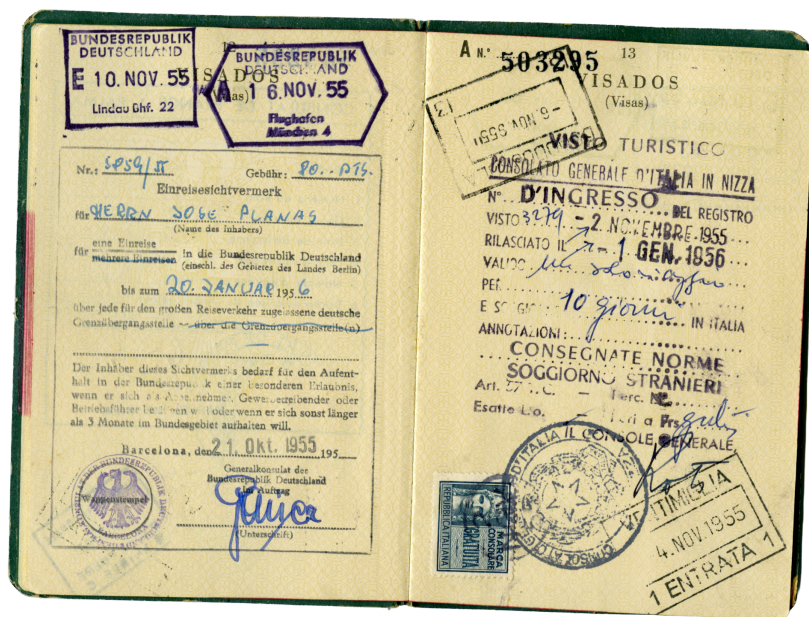 BUNDESREPUBLIK
DEUTSCHLAND
E 10. NOV. 55
Lindau Bhf. 22
12
VISADOS
(Visas)
BUNDESREPUBLIK
DEUTSCHLAND
A 16. NOV. 55
Flughafen
München 4
Nr.: Gebühr: 80.- PTS.
Einreisesichtvermerk
für HERRN JOSE PLANAS
(Name des Inhabers)
für eine Einreise
mehrere Einreisen in die Bundesrepublik Deutschland
(einschl. des Gebietes des Landes Berlin)
bis zum 20. JANUAR 1956
über jede für den großen Reiseverkehr zugelassene deutsche
Grenzübergangsstelle — über die Grenzübergangsstelle(n)
Der Inhaber dieses Sichtvermerks bedarf für den Aufent-
halt in der Bundesrepublik einer besonderen Erlaubnis,
wenn er sich als Arbeitnehmer, Gewerbetreibender oder
Betriebsführer betätigen will oder wenn er sich sonst länger
als 3 Monate im Bundesgebiet aufhalten will.
Barcelona, den 21. Okt. 1955 195
Generalkonsulat der
Bundesrepublik Deutschland
Im Auftrag
Wappenstempel
(Unterschrift)
A N.º 503295 13
VISADOS
(Visas)
13
-6. NOV. 955
VISTO TURISTICO
CONSOLATO GENERALE D'ITALIA IN NIZZA
N° D'INGRESSO DEL REGISTRO
VISTO 3279 - 2 NOVEMBRE 1955
RILASCIATO IL - 1 GEN. 1956
VALIDO un solo viaggio
PER
E SOGGIORNO 10 giorni IN ITALIA
ANNOTAZIONI:
CONSEGNATE NORME
SOGGIORNO STRANIERI
Art. 27
Esatte
IL CONSOLE GENERALE
MARCA
CONSOLARE
GRATUITA
REPUBBLICA ITALIANA
VENTIMIGLIA
4. NOV. 1955
1 ENTRATA 1